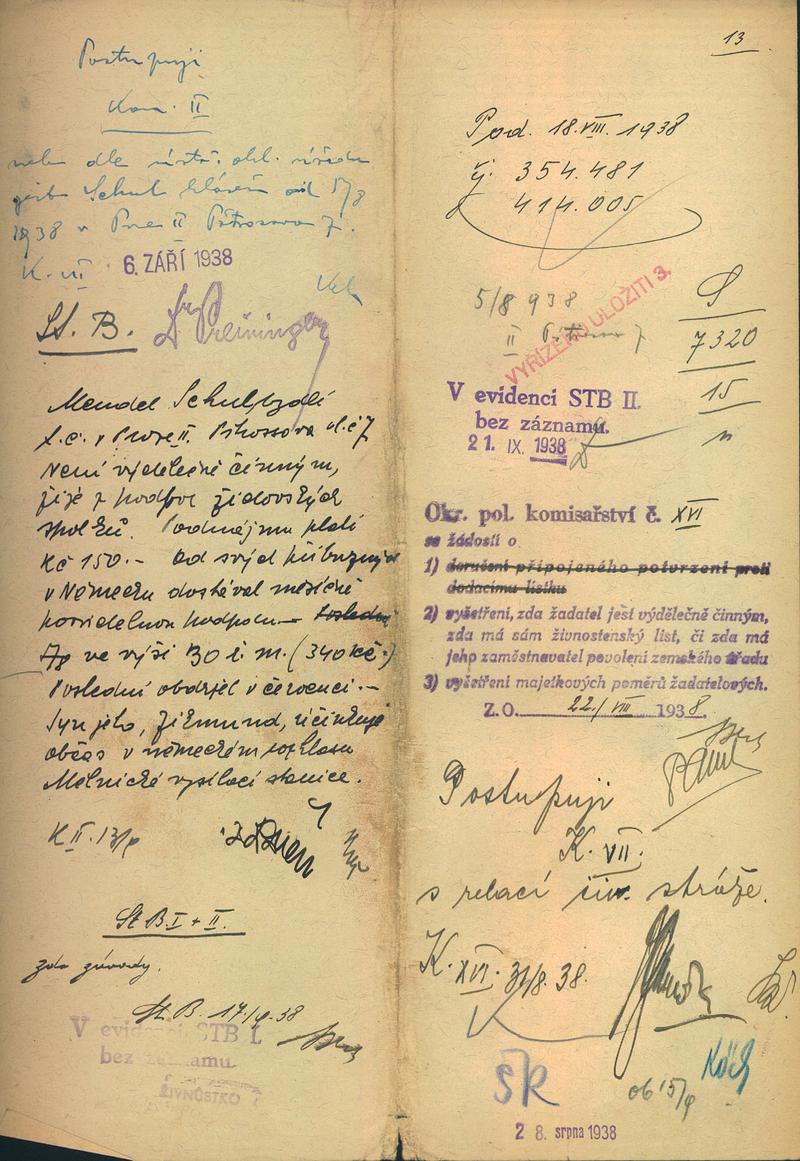 Postupuji
Kom. II
nebo dle ústř. ohl. úřadu
jest Schul hlášen od 5/8
1938 v Praze II Pštrossova 7.
K. VII
6. ZÁŘÍ 1938
St. B.
Dr Preininger
Mendel Schul, bydlí
t.č. v Praze II. Pštrossova ul. č 7
Není výdělečně činným,
žije z podpor židovských
spolků. Podnájmu platí
Kč 150.- Od svých příbuzných
v Německu dostával měsíčně
pravidelnou podporu - Poslední
ve výši 30 ř. m. (340 Kč.)
Poslední obdržel v červenci.-
Syn jeho, Zikmund, účinkuje
občas v německém rozhlasu
Mělnické vysílací stanice.
K II. 13/9
St B I + II.
zda závady.
St. B. 17/9 38
V evidenci STB I.
bez záznamu.
ŽIVNOSTKO
13
Pod. 18. VIII. 1938
čj. 354.481
414.005
5/8 938
II Pštrossova 7
VYŘÍZENO ULOŽITI 3.
S
7320
15
n
V evidenci STB II.
bez záznamu.
21. IX. 1938
Okr. pol. komisařství č. XVI
se žádostí o
1) doručení připojeného potvrzení proti
dodacímu lístku
2) vyšetření, zda žadatel jest výdělečně činným,
zda má sám živnostenský list, či zda má
jeho zaměstnavatel povolení zemského úřadu
3) vyšetření majetkových poměrů žadatelových.
Z. O. 22./VIII 1938.
Postupuji
K. VII.
s relací civ. stráže.
K. XVI. 31/8. 38.
ŠK
ob 15/9
Köch
28. srpna 1938